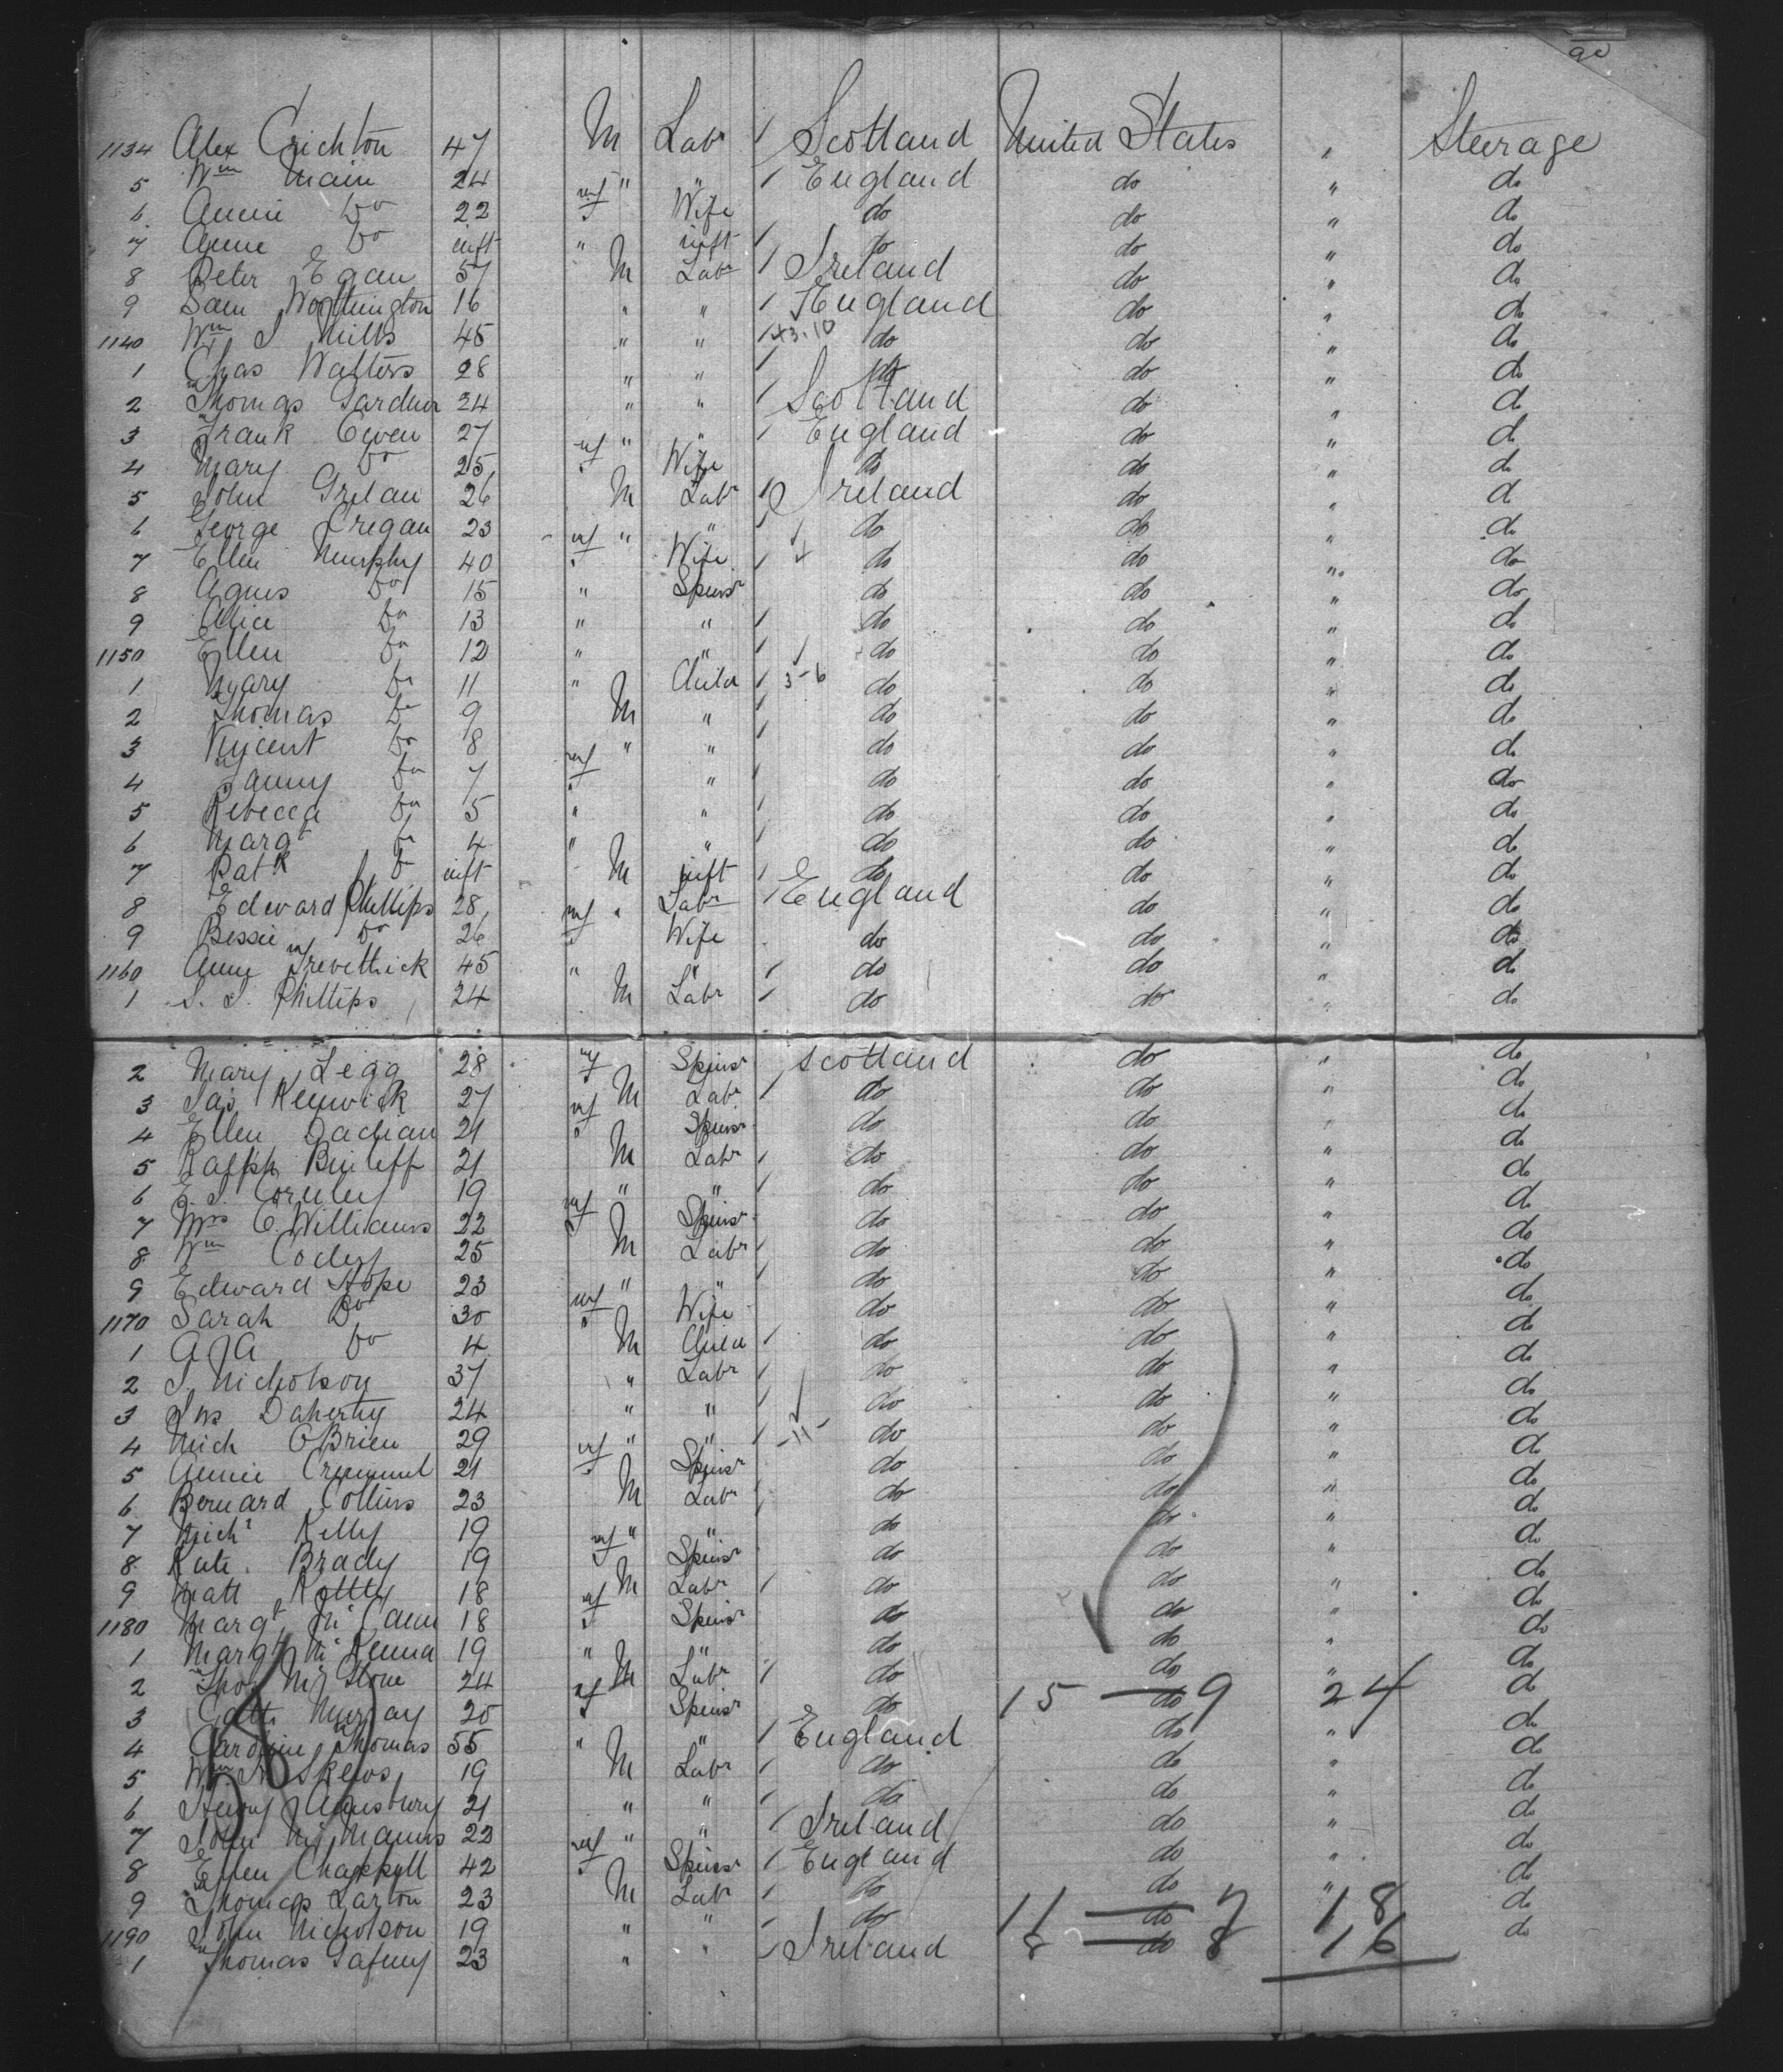 90
1134 Alex Crichton 47 M Labr / Scotland United States " Steerage
5 Wm Main 24 " " / England do " do
6 Annie Do 22 f Wife do do " do
7 Anne Do inft " inft / do do " do
8 Peter Egan 57 M Labr / Ireland do " do
9 Sam Worthington 16 " " / England do " do
1140 Wm J Mills 45 " " / 43.10 do do " do
1 Chas Watters 28 " " / do do " do
2 Thomas Gardner 24 " " / Scotland do " do
3 Frank Owen 27 " " / England do " do
4 Mary Do 25 f Wife do do " do
5 John 26 M Labr / Ireland do " do
6 George Cregan 23 " " / do do " do
7 Ellen Murphy 40 f Wife / do do " do
8 Agnes Do 15 " Spinsr do do " do
9 Alice Do 13 " " / do do " do
1150 Ellen Do 12 " " / do do " do
1 Mary Do 11 " Child / 3-6 do do " do
2 Thomas Do 9 M " / do do " do
3 Vincent Do 8 " " / do do " do
4 Fanny Do 7 f " / do do " do
5 Rebecca Do 5 " " / do do " do
6 Margt Do 4 " " / do do " do
7 Patk Do inft M inft / do do " do
8 Edward Phillips 28 " Labr / England do " do
9 Bessie Do 26 f Wife do do " do
1160 Anne Trevethick 45 " " / do do " do
1 S. J. Phillips 24 M Labr / do do " do
2 Mary Legg 28 f Spinsr Scotland do " do
3 Jas Renwick 27 M Labr / do do " do
4 Ellen 21 f Spinsr do do " do
5 Ralph 21 M Labr / do do " do
6 E. J. 19 " " / do do " do
7 Mrs C. Williams 22 f Spinsr do do " do
8 Wm Codey 25 M Labr / do do " do
9 Edward Hope 23 " " / do do " do
1170 Sarah Do 30 f Wife do do " do
1 A J A Do 4 M Child / do do " do
2 J. Nicholson 37 " Labr / do do " do
3 Jas Daherty 24 " " / do do " do
4 Mich OBrien 29 " " / -11- do do " do
5 Annie 21 f Spinsr do do " do
6 Bernard Collins 23 M Labr / do do " do
7 Michl Kelly 19 " " do do " do
8 Kate Brady 19 f Spinsr do do " do
9 Matt Kelly 18 M Labr / do do " do
1180 Margt McCann 18 f Spinsr do do " do
1 Margt McKenna 19 " " do do " do
2 Thos McGlone 24 M Labr / do do " do
3 Cath Murray 20 f Spinsr do 15 — do 9 24 do
4 Caroline Thomas 55 " " / England do " do
5 Wm N Skews 19 M Labr / do do " do
6 Henry 21 " " / do do " do
7 John McManus 22 " " / Ireland do " do
8 Ellen Chappell 42 f Spinsr / England do " do
9 Thomas Larson 23 M Labr / do do " do
1190 John Nicholson 19 " " / do 11 — do 7 18 do
1 Thomas Gafney 23 " " / Ireland 8 — do 8 16 do